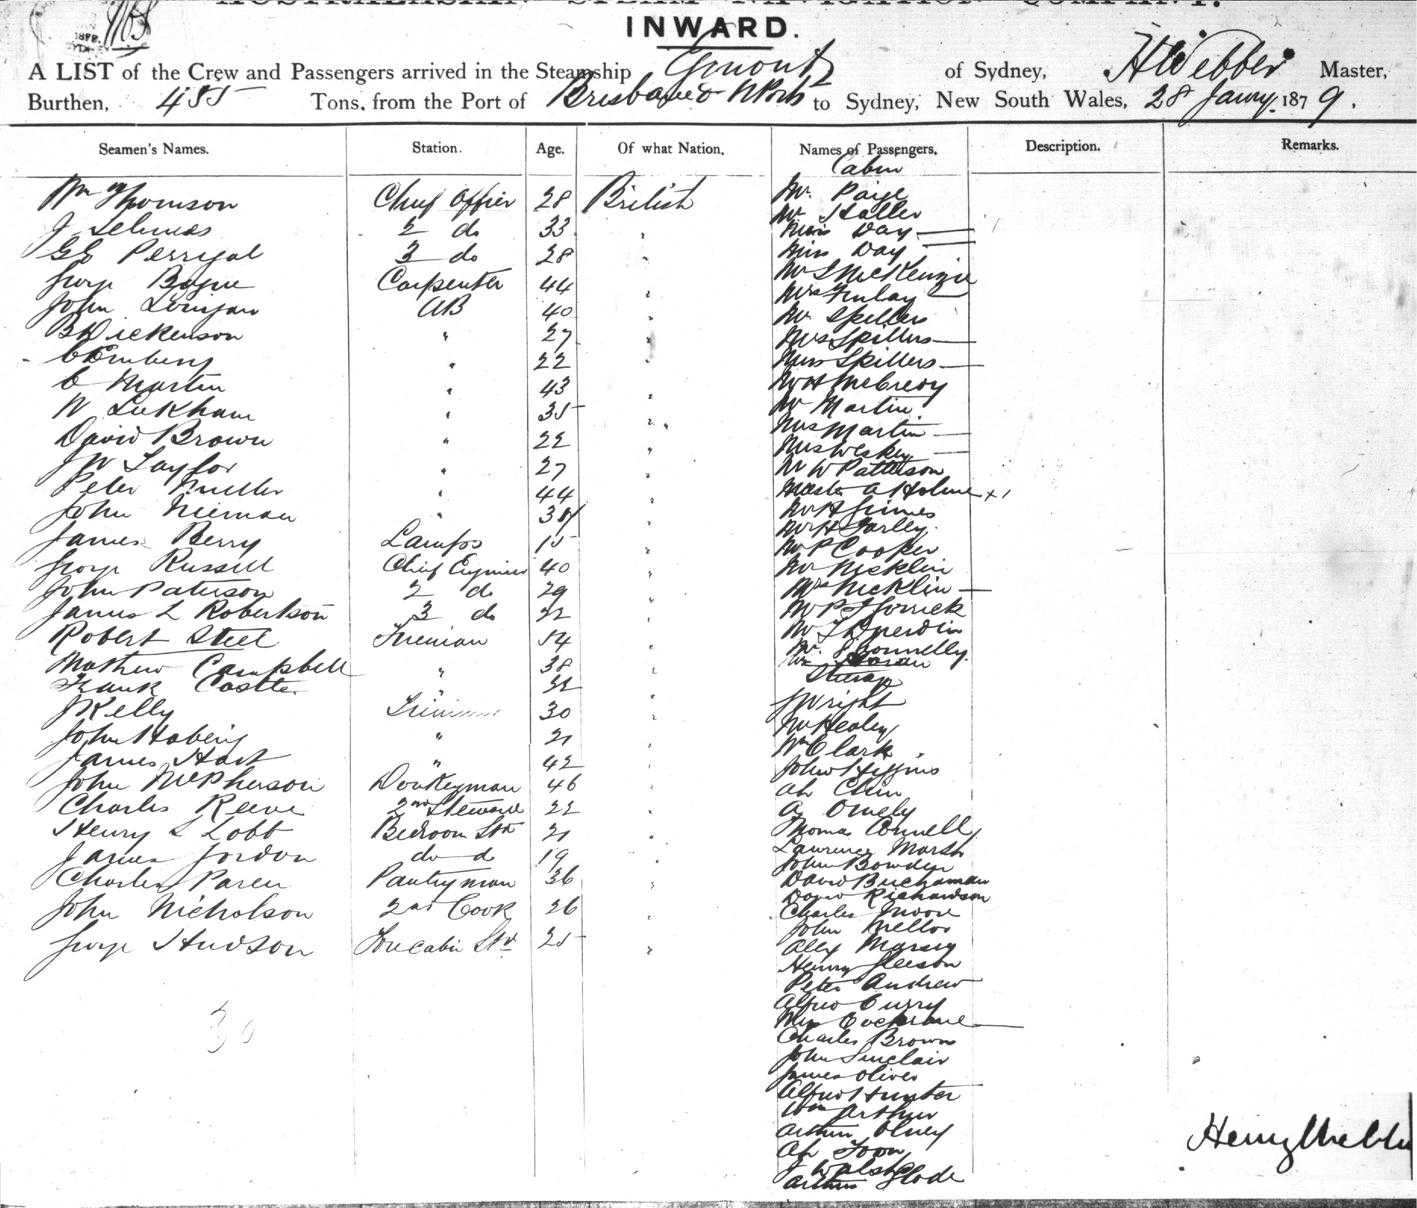 AUSTRALASIAN STEAM NAVIGATION COMPANY.
INWARD.
A LIST of the Crew and Passengers arrived in the Steamship of Sydney, H Webber Master,
Burthen, 455 Tons, from the Port of Brisbane & to Sydney, New South Wales, 28 Jany. 1879.
Seamen's Names. Station. Age. Of what Nation. Names of Passengers. Description. Remarks.
Cabin
Wm Thomson Chief Officer 28 British Mr. Paige
J 2 do 33 " Mr Haller
Miss Day
G E Perryal 3 do 28 " Miss Day
George Bogue Carpenter 44 " Mr S McKenzie
Mrs Finlay
John Lonigan AB 40 " Mr Spillers
B Dickenson " 27 " Mrs Spillers
22 " Miss Spillers
C Martin " 43 " Mr H McCreevy
W Luckham " 35 " Mr Martin
Mrs Martin
David Brown " 22 " Mrs Weskey
J W Taylor " 27 " Mr W Patterson
Peter Mueller " 44 " Master A Holme x 1
John Nieman " " Mr H Grimes
Mr H Farley
James Berry Lamps 15 " Mr P Cooper
George Russell Chief Engineer 40 " Mr Nicklin
John Paterson 2 do 29 " Mrs Nicklin
James L Robertson 3 do 22 " Mr P J Gorrick
Robert Steel Fireman 54 " Mr T
Mr. J Donnelly
Mathew Campbell " 38 "
Frank Castle " 32 " Steerage
J Kelly Fireman 30 " J Wright
John " 21 " M Healey
James Hart " 42 " Wm Clark
John McPherson Donkeyman 46 " John Higgins
Ah Chin
Charles Reeve 2nd Steward 22 " A
Henry S Lobb Bedroom Std 21 " Thomas Connell
James Jordon do d 19 " Lawrence Marsh
John Bowden
Charles Paren Pantryman 36 " David Buchanan
David Richardson
John Nicholson 2nd Cook 26 " Charles Moore
John Mellor
George Hudson Forecabin Std 25 " Alex Marsey
Henry Gleeson
Peter Andrew
Alfred Curry
30 Mrs Cockrane
Charles Brown
John Sinclair
James Oliver
Alfred Hunter
Wm Arthur
Arthur Olney Henry Webber
Ah Foon
J Walsh
Arthur Glode